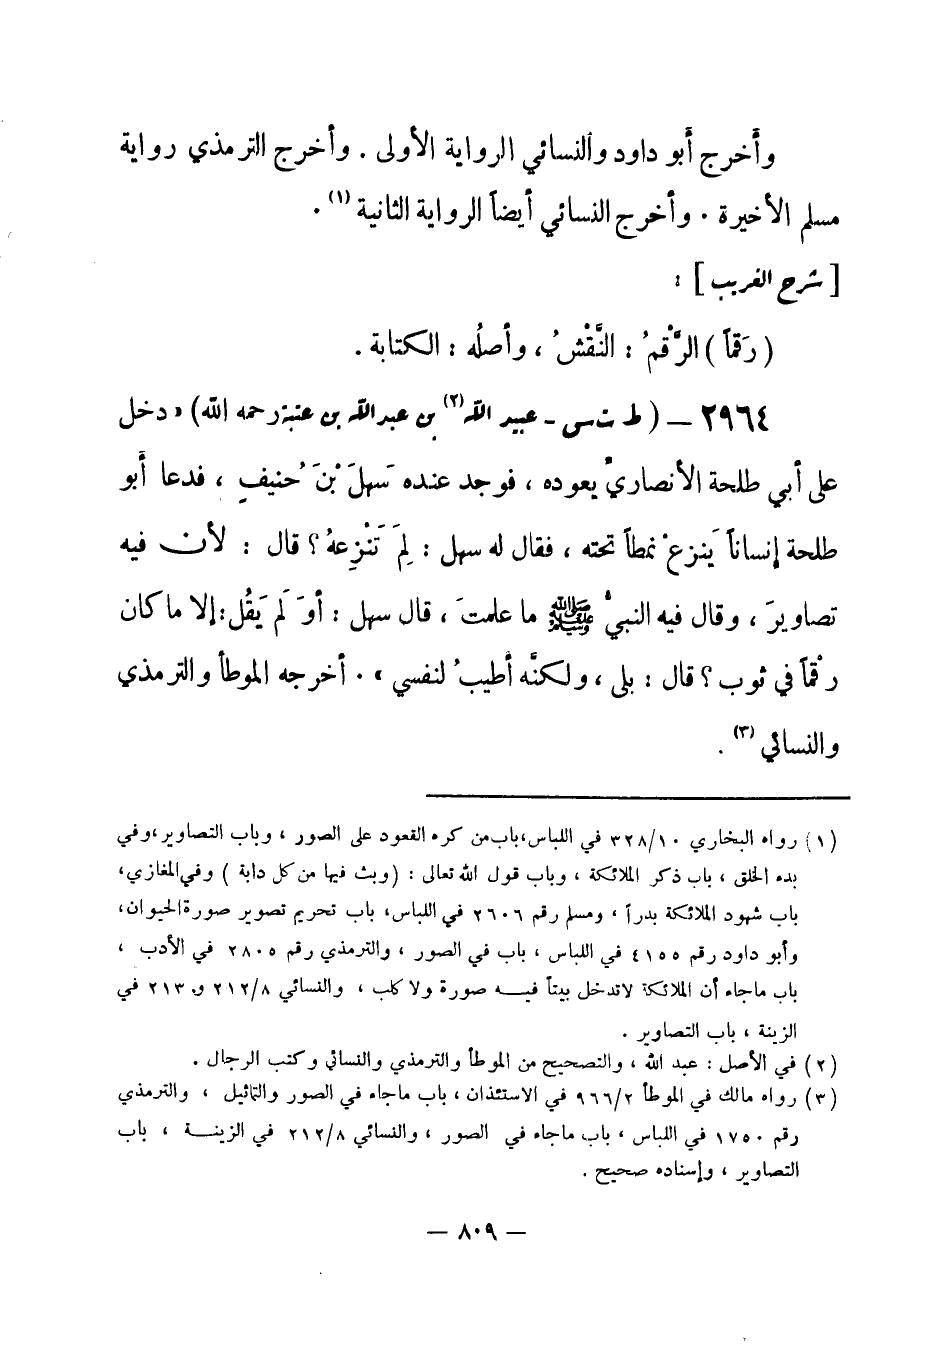 وأخرج أبو داود والنسائي الرواية الأولى . وأخرج الترمذي رواية
مسلم الأخيرة . وأخرج النسائي أيضاً الرواية الثانية (١) .
[ شرح الغريب ] :
( رَقماً ) الرَّقْمُ : النَّقْشُ ، وأصلُه : الكتابة .
٢٩٦٤ – ( ط ت س - عبيد الله (٢) بن عبد الله بن عتبة رحمه الله ) « دخل
على أبي طلحة الأنصاريِّ يعوده ، فوجد عنده سَهلَ بْنَ حُنيفٍ ، فدعا أبو
طلحة إنساناً يَنزعُ نمطاً تحته ، فقال له سهل : لِمَ تَنْزِعهُ ؟ قال : لأن فيه
تصاويرَ ، وقال فيه النبيُّ ﷺ ما علمتَ ، قال سهل : أوَ لَم يَقُل : إلا ما كان
رقْماً في ثوب ؟ قال : بلى ، ولكنَّه أطيبُ لنفسي » . أخرجه الموطأ والترمذي
والنسائي (٣) .
(١) رواه البخاري ٣٢٨/١٠ في اللباس، باب من كره القعود على الصور ، وباب التصاوير ، وفي
بدء الخلق ، باب ذكر الملائكة ، وباب قول الله تعالى : ( وبث فيها من كل دابة ) وفي المغازي،
باب شهود الملائكة بدراً ، ومسلم رقم ٢٦٠٦ في اللباس، باب تحريم تصوير صورة الحيوان،
وأبو داود رقم ٤١٥٥ في اللباس ، باب في الصور ، والترمذي رقم ٢٨٠٥ في الأدب ،
باب ماجاء أن الملائكة لاتدخل بيتاً فيه صورة ولا كلب ، والنسائي ٢١٢/٨ و ٢١٣ في
الزينة ، باب التصاوير .
(٢) في الأصل : عبد الله ، والتصحيح من الموطأ والترمذي والنسائي وكتب الرجال .
(٣) رواه مالك في الموطأ ٩٦٦/٢ في الاستئذان ، باب ماجاء في الصور والتماثيل ، والترمذي
رقم ١٧٥٠ في اللباس ، باب ماجاء في الصور ، والنسائي ٢١٢/٨ في الزينة ، باب
التصاوير ، وإسناده صحيح .
– ٨٠٩ –